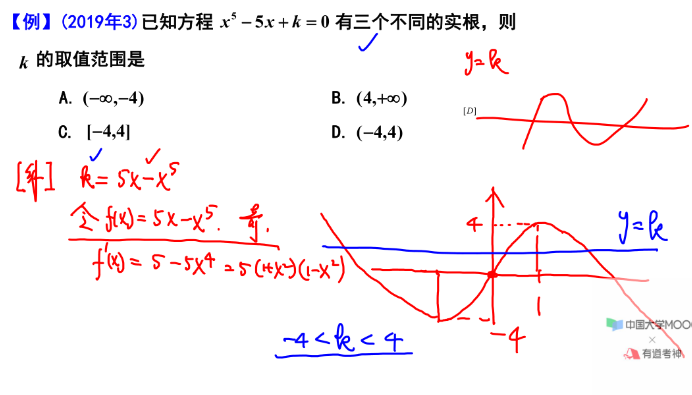 【例】(2019年3)已知方程 x⁵ − 5x + k = 0 有三个不同的实根，则
k 的取值范围是
y=k
A. (−∞,−4)
B. (4,+∞)
[D]
C. [−4,4]
D. (−4,4)
[解] k = 5x−x⁵
令 f(x) = 5x−x⁵. 奇.
f'(x) = 5−5x⁴ = 5(1+x²)(1−x²)
4
y=k
1
−4
−4<k<4
中国大学MOOC
×
有道考神